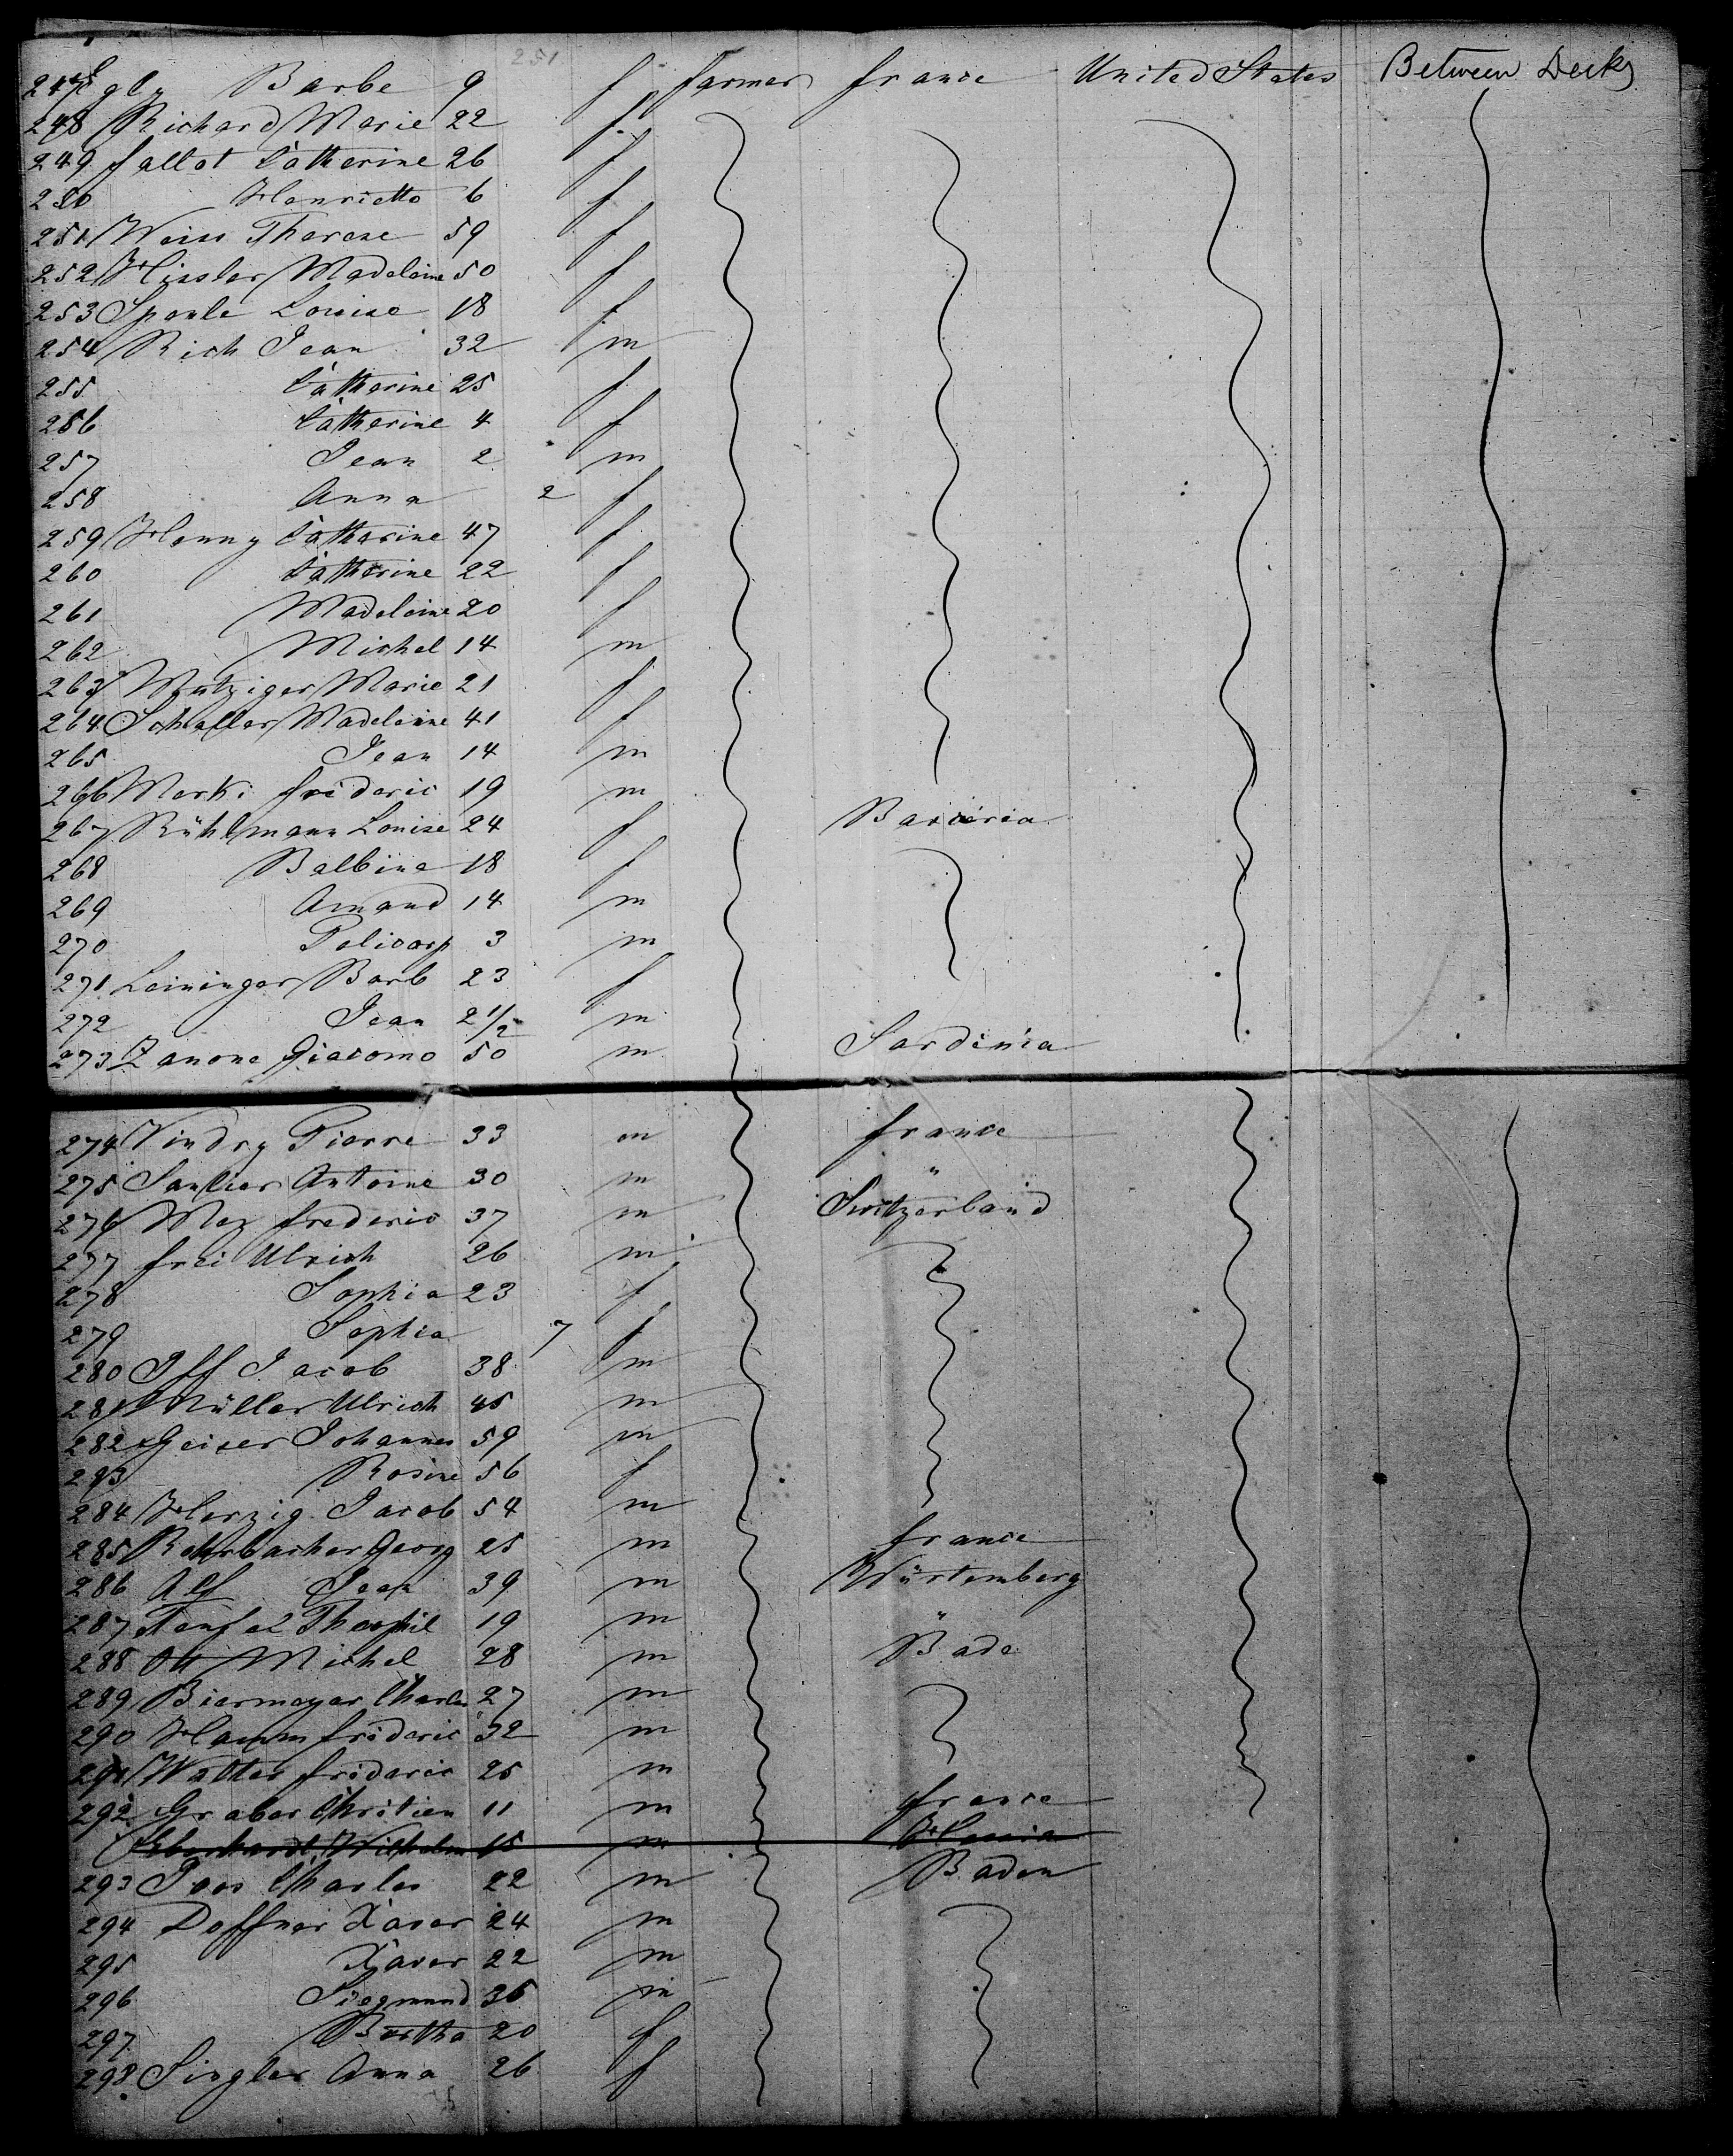 251
247 Egly Barbe 9 f farmer france United States Between Decks
248 Richard Marie 22 f
249 fallot Catherine 26 f
250 Henriette 6 f
251 Weiss Therese 59 f
252 Hissler Madeleine 50 f
253 Sponle Louise 18 f
254 Rich Jean 32 m
255 Catherine 25 f
256 Catherine 4 f
257 Jean 2 m
258 Anna 2 f
259 Henny Catherine 47 f
260 Catherine 22 f
261 Madeleine 20 f
262 Michel 14 m
263 Mutziger Marie 21 f
264 Schaller Madeleine 41 f
265 Jean 14 m
266 Merki frideric 19 m
267 Rühlmann Louise 24 f Bavieria
268 Balbina 18 f
269 Amand 14 m
270 Policarp 3 m
271 Leininger Barb 23 f
272 Jean 2 1/2 m
273 Zanone Giacomo 50 m Sardinia
274 Vindry Pierre 33 m france
275 Saulier Antoine 30 m "
276 Mez frederic 37 m Switzerland
277 frei Ulrich 26 m
278 Sophia 23 f
279 Sophia 7 f
280 Iff Jacob 38 m
281 Müller Ulrich 45 m
282 Geiser Johannes 59 m
283 Rosine 56 f
284 Herzig Jacob 54 m
285 Rohrbacher Georg 25 m france
286 Alf Jean 39 m Würtemberg
287 Teufel Theophil 19 m "
288 Ott Michel 28 m Bade
289 Biermeyer Charles 27 m
290 Hamm frideric 32 m
291 Walter frideric 25 m
292 Graber Chritien 11 m france
Eberhardt Wilhelm 15 m Hessia
293 Joos Charles 22 m Baden
294 Deffner Xaver 24 m
295 Xaver 22 m
296 Siegmund 36 m
297 Bertha 20 f
298 Singler Anna 26 f